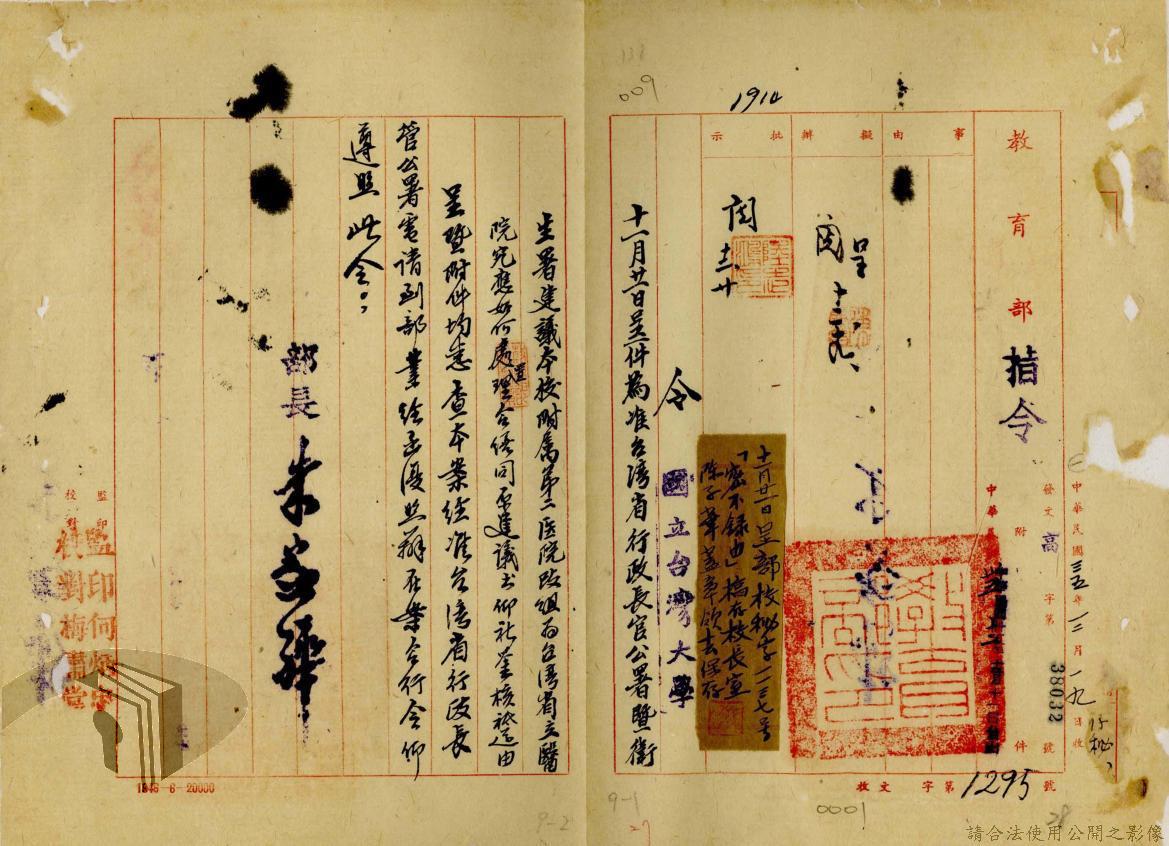 009
1910
教育部 指令
事由
擬辦
批示
中華民國三五年一二月一九日收
發文 高 字第 38032 號
附件
呈
閱
閱
十二、廿
令 國立台灣大學
十一月廿一日呈部校秘字一三七號
「密不錄由」稿存校長室
陳子華蓋章領去保存
十一月廿一日呈一件為准台灣省行政長官公署暨衛
生署建議本校附屬第二医院改組為台灣省立醫
院究應如何處理合備同原建議書仰祈鑒核祗遵由
呈暨附件均悉查本案經准台灣省行政長
官公署電請到部業經函復照辦在案合行令仰
遵照此令。
部長 朱家驊
監印
校對
監印何
校對梅
收文字第1295號
1946-6-20000
9-1
9-2
27
0001
28
請合法使用公開之影像